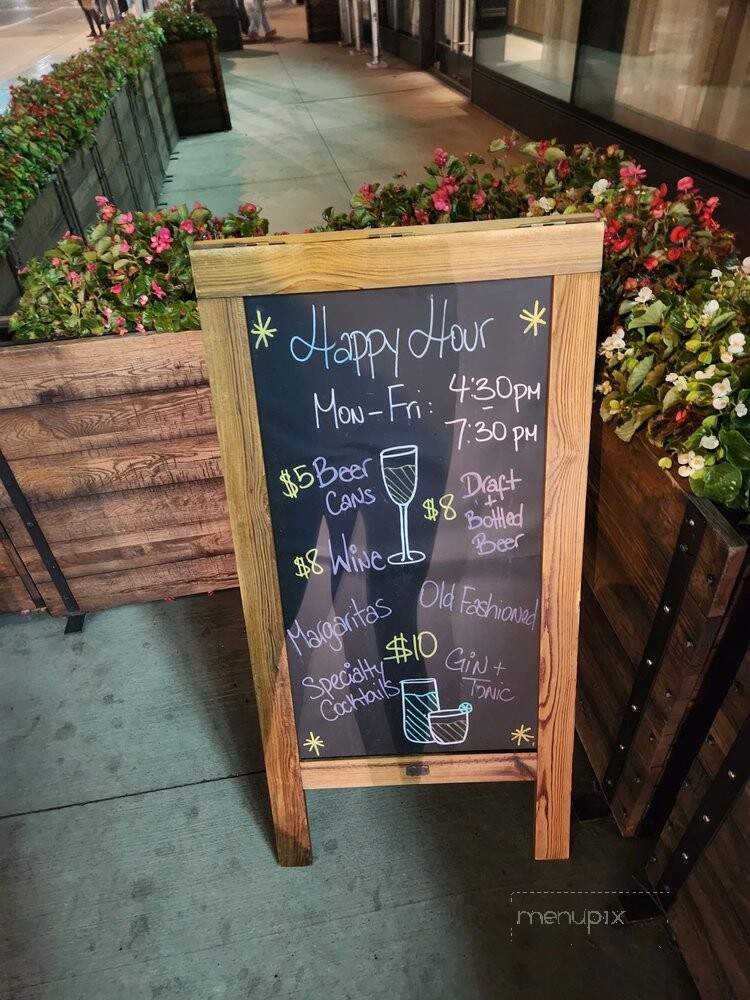 Happy Hour
Mon-Fri: 4:30pm
-
7:30 pm
$5 Beer
Cans
$8 Draft
+
Bottled
Beer
$8 Wine
Margaritas
Old Fashioned
$10
Specialty
Cocktails
Gin +
Tonic
menupix